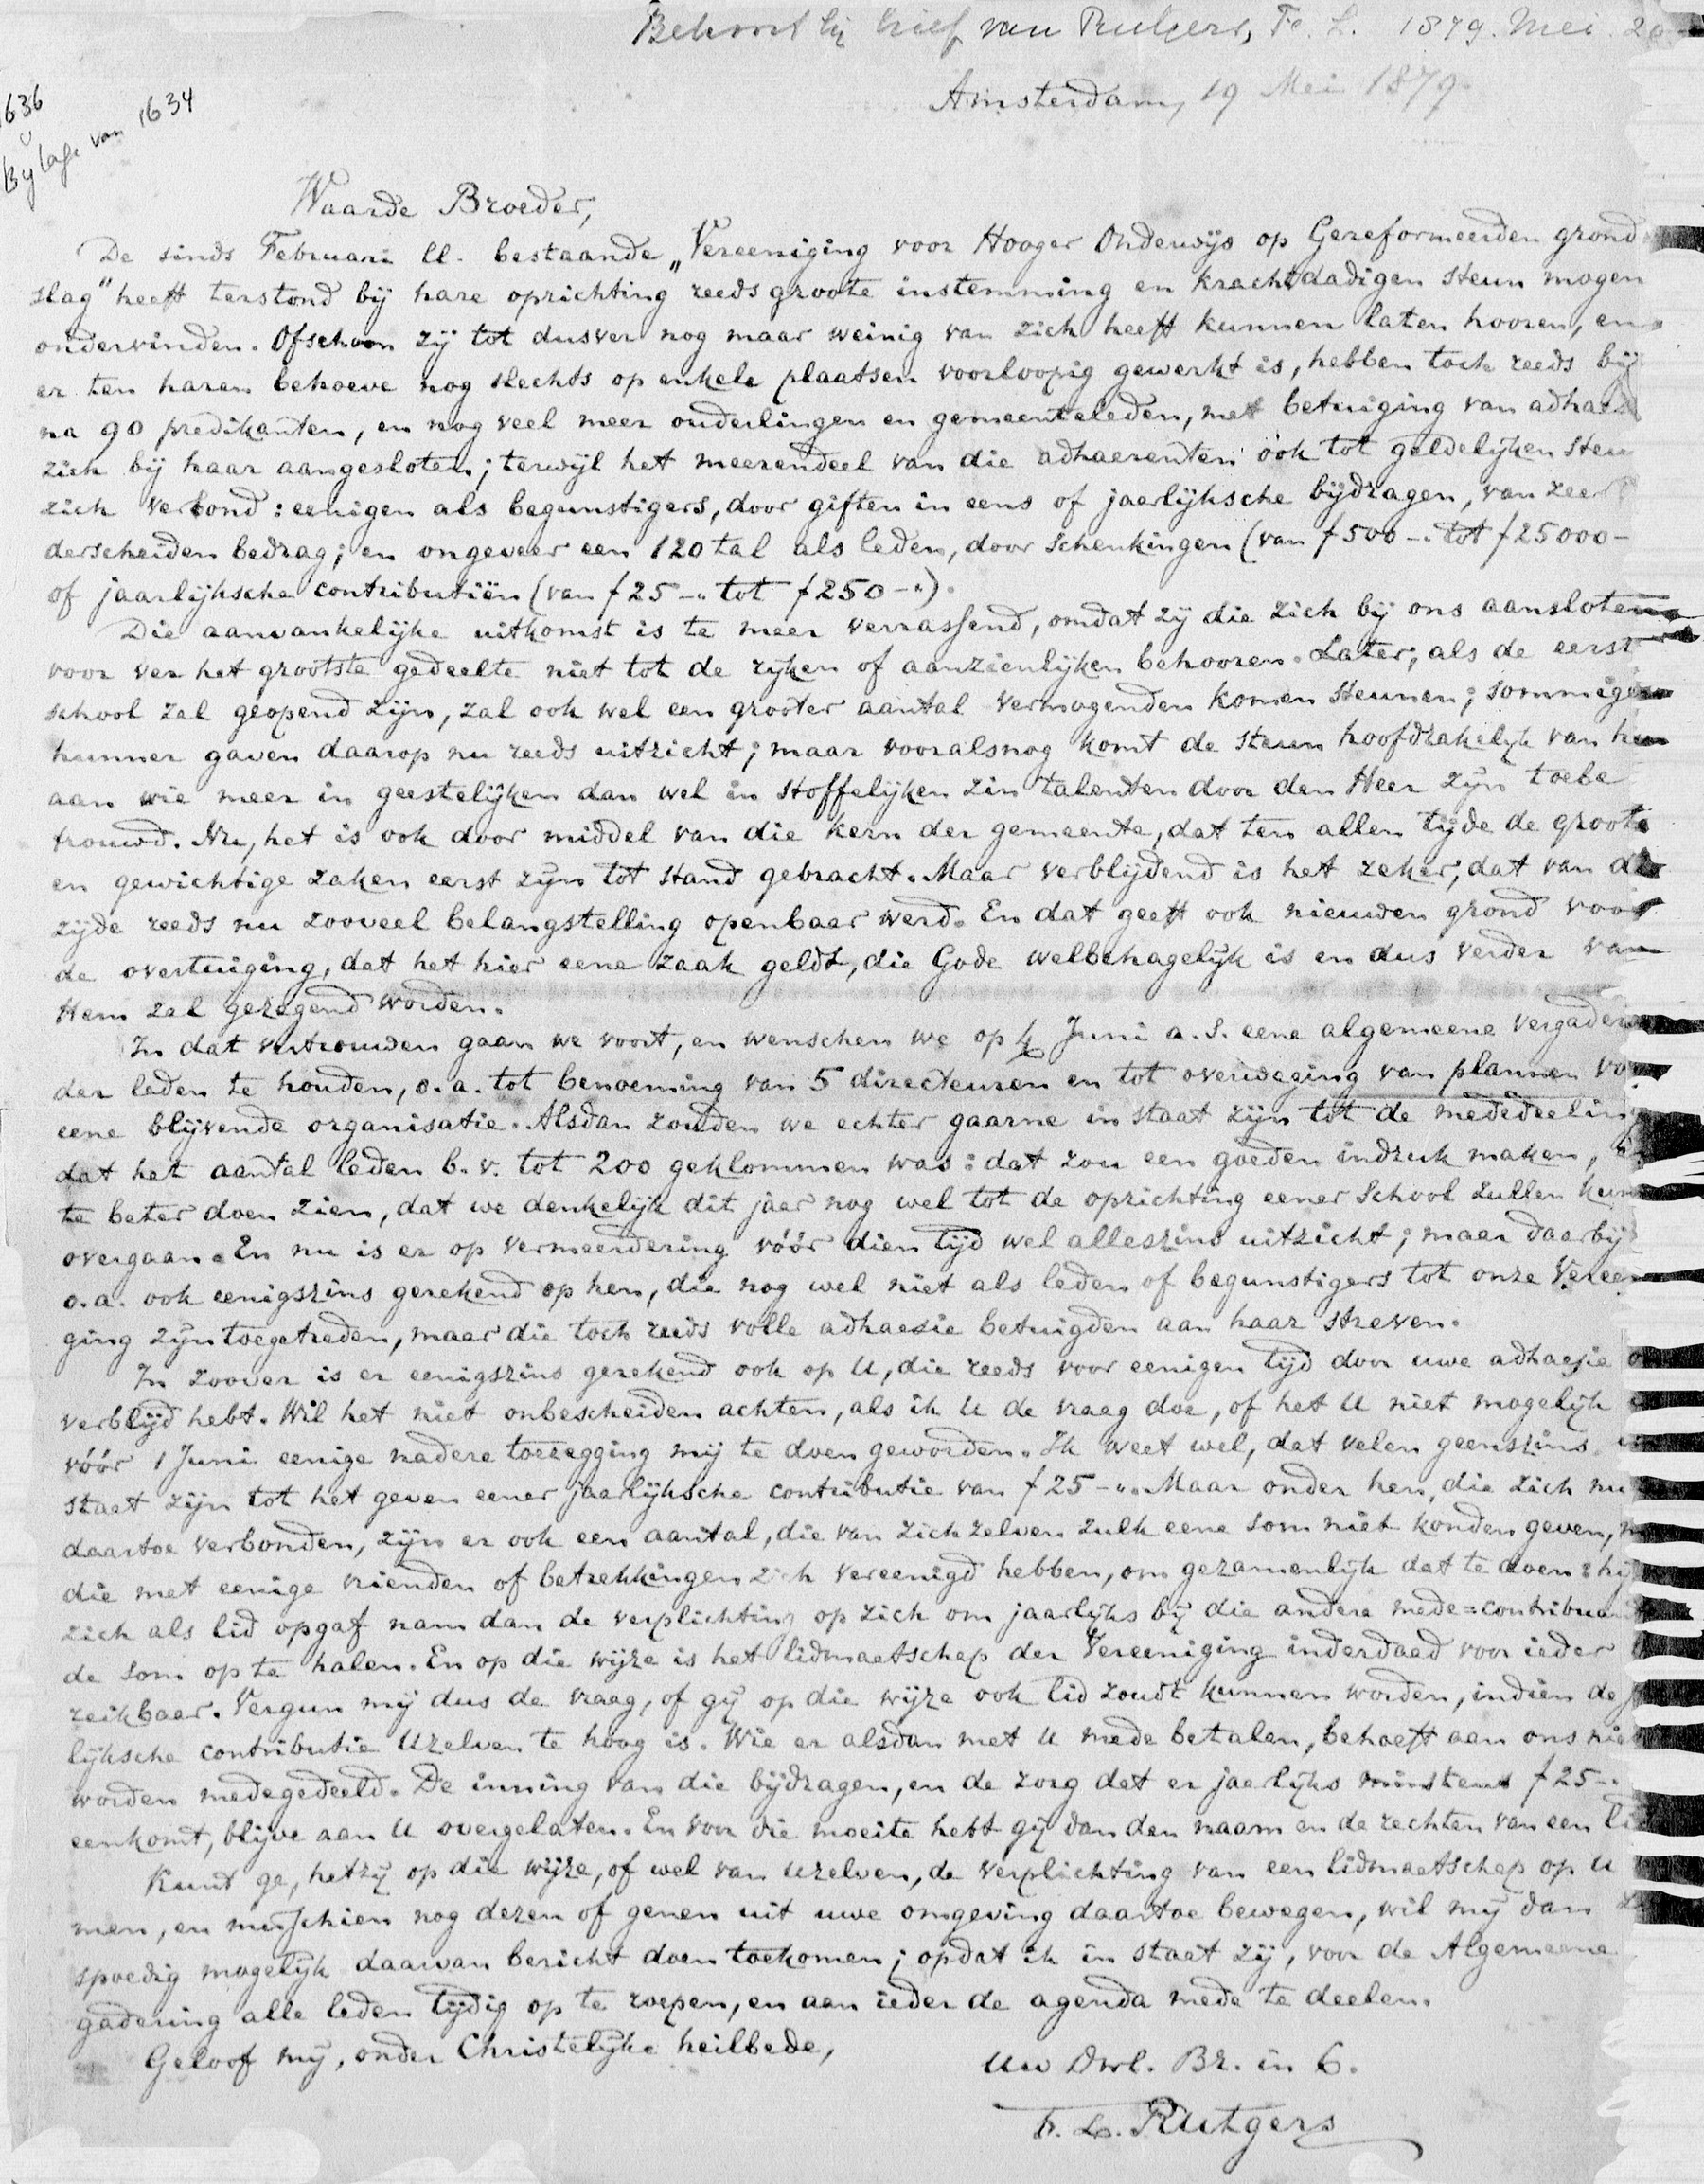 Behoort bij brief van Rutgers, F. L. 1879. Mei 20
Amsterdam, 19 Mei 1879.
1636
bijlage van 1634
Waarde Broeder,
De sinds Februari ll. bestaande „Vereeniging voor Hooger Onderwijs op Gereformeerden grond
slag" heeft terstond bij hare oprichting reeds groote instemming en krachtdadigen steun mogen
ondervinden. Ofschoon zij tot dusver nog maar weinig van zich heeft kunnen laten hooren, en
er ten haren behoeve nog slechts op enkele plaatsen voorloopig gewerkt is, hebben toch reeds bij
na 90 predikanten, en nog veel meer ouderlingen en gemeenteleden, met betuiging van adhaes
zich bij haar aangesloten; terwijl het meerendeel van die adhaerenten ook tot geldelijken steu
zich verbond: eenigen als begunstigers, door giften in eens of jaerlijksche bijdragen, van zeer
derscheiden bedrag; en ongeveer een 120 tal als leden, door schenkingen (van f 500 -. tot f 25000 -
of jaarlijksche contributiën (van f 25 -" tot f 250 -").
Die aanvankelijke uitkomst is te meer verrassend, omdat zij die zich bij ons aansloten
voor ver het grootste gedeelte niet tot de rijken of aanzienlijken behooren. Later, als de eerst
school zal geopend zijn, zal ook wel een grooter aantal vermogenden komen steunen; sommigen
hunner gaven daarop nu reeds uitzicht; maar vooralsnog komt de steun hoofdzakelijk van hen
aan wie meer in geestelijken dan wel in stoffelijken zin talenten door den Heer zijn toebe
trouwd. Nu, het is ook door middel van die kern der gemeente, dat ten allen tijde de groote
en gewichtige zaken eerst zijn tot stand gebracht. Maar verblijdend is het zeker, dat van die
zijde reeds nu zooveel belangstelling openbaar werd. En dat geeft ook nieuwen grond voor
de overtuiging, dat het hier eene zaak geldt, die Gode welbehagelijk is en dus verder van
Hem zal gezegend worden.
In dat vertrouwen gaan we voort, en wenschen we op 4 Juni a.s. eene algemeene vergaderi
der leden te houden, o.a. tot benoeming van 5 directeuren en tot overweging van plannen voo
eene blijvende organisatie. Alsdan zouden we echter gaarne in staat zijn tot de mededeeling
dat het aantal leden b.v. tot 200 geklommen was: dat zou een goeden indruk maken,
te beter doen zien, dat we denkelijk dit jaar nog wel tot de oprichting eener School zullen kun
overgaan. En nu is er op vermeerdering vóór dien tijd wel alleszins uitzicht; maar daarbij
o.a. ook eenigszins gerekend op hen, die nog wel niet als leden of begunstigers tot onze Veree
ging zijn toegetreden, maar die toch reeds volle adhaesie betuigden aan haar streven.
In zoover is er eenigszins gerekend ook op U, die reeds voor eenigen tijd door uwe adhaesie
verblijd hebt. Wil het niet onbescheiden achten, als ik U de vraag doe, of het U niet mogelijk
vóór 1 Juni eenige nadere toezegging mij te doen geworden. Ik weet wel, dat velen geenszins
staat zijn tot het geven eener jaarlijksche contributie van f 25 -". Maar onder hen, die zich nu
daartoe verbonden, zijn er ook een aantal, die van zich zelven zulk eene som niet konden geven,
die met eenige vrienden of betrekkingen zich vereenigd hebben, om gezamenlijk dat te doen: hij
zich als lid opgaf nam dan de verplichting op zich om jaarlijks bij die andere mede=contribuan
de som op te halen. En op die wijze is het lidmaatschap der Vereeniging inderdaad voor ieder
reikbaar. Vergun mij dus de vraag, of gij op die wijze ook lid zoudt kunnen worden, indien de j
lijksche contributie Uzelven te hoog is. Wie er alsdan met U mede betalen, behoeft aan ons nie
worden medegedeeld. De inning van die bijdragen, en de zorg dat er jaerlijks minstens f 25 -.
eenkomt, blijve aan U overgelaten. En voor die moeite hebt gij dan den naam en de rechten van een li
Kunt ge, hetzij op die wijze, of wel van uzelven, de verplichting van een lidmaatschap op U
men, en misschien nog dezen of genen uit uwe omgeving daartoe bewegen, wil mij dan
spoedig mogelijk daarvan bericht doen toekomen; opdat ik in staat zij, voor de Algemeene
gadering alle leden tijdig op te roepen, en aan ieder de agenda mede te deelen.
Geloof mij, onder Christelijke heilbede,
Uw Dwl. Br. in C.
F. L. Rutgers